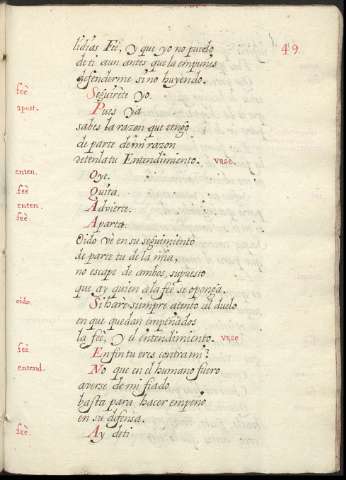 49
lidias Feè. Y que yo no puedo
de ti aun antes que la empuñes
defenderme sino huyendo.
feè Seguirète yo.
apost. Pues ya
sabes la razon que tengo
de parte de mi razon
detenla tu Entendimiento. vase.
enten. Oye.
feè Quita.
enten. Advierte.
feè. Aparta.
Oido vè en su seguimiento
de parte tu de la mia,
no escape de ambos, supuesto
que ay quien a la feè se oponga.
oido. Si harè siempre atento al duelo
en que quedan empeñados
la feè, Y el entendimiento. vase
feè En fin tu eres contra mi?
entend. No que en el humano fuero
averse de mi fiado
basta para hacer empeño
en su defensa.
feè. Ay de ti